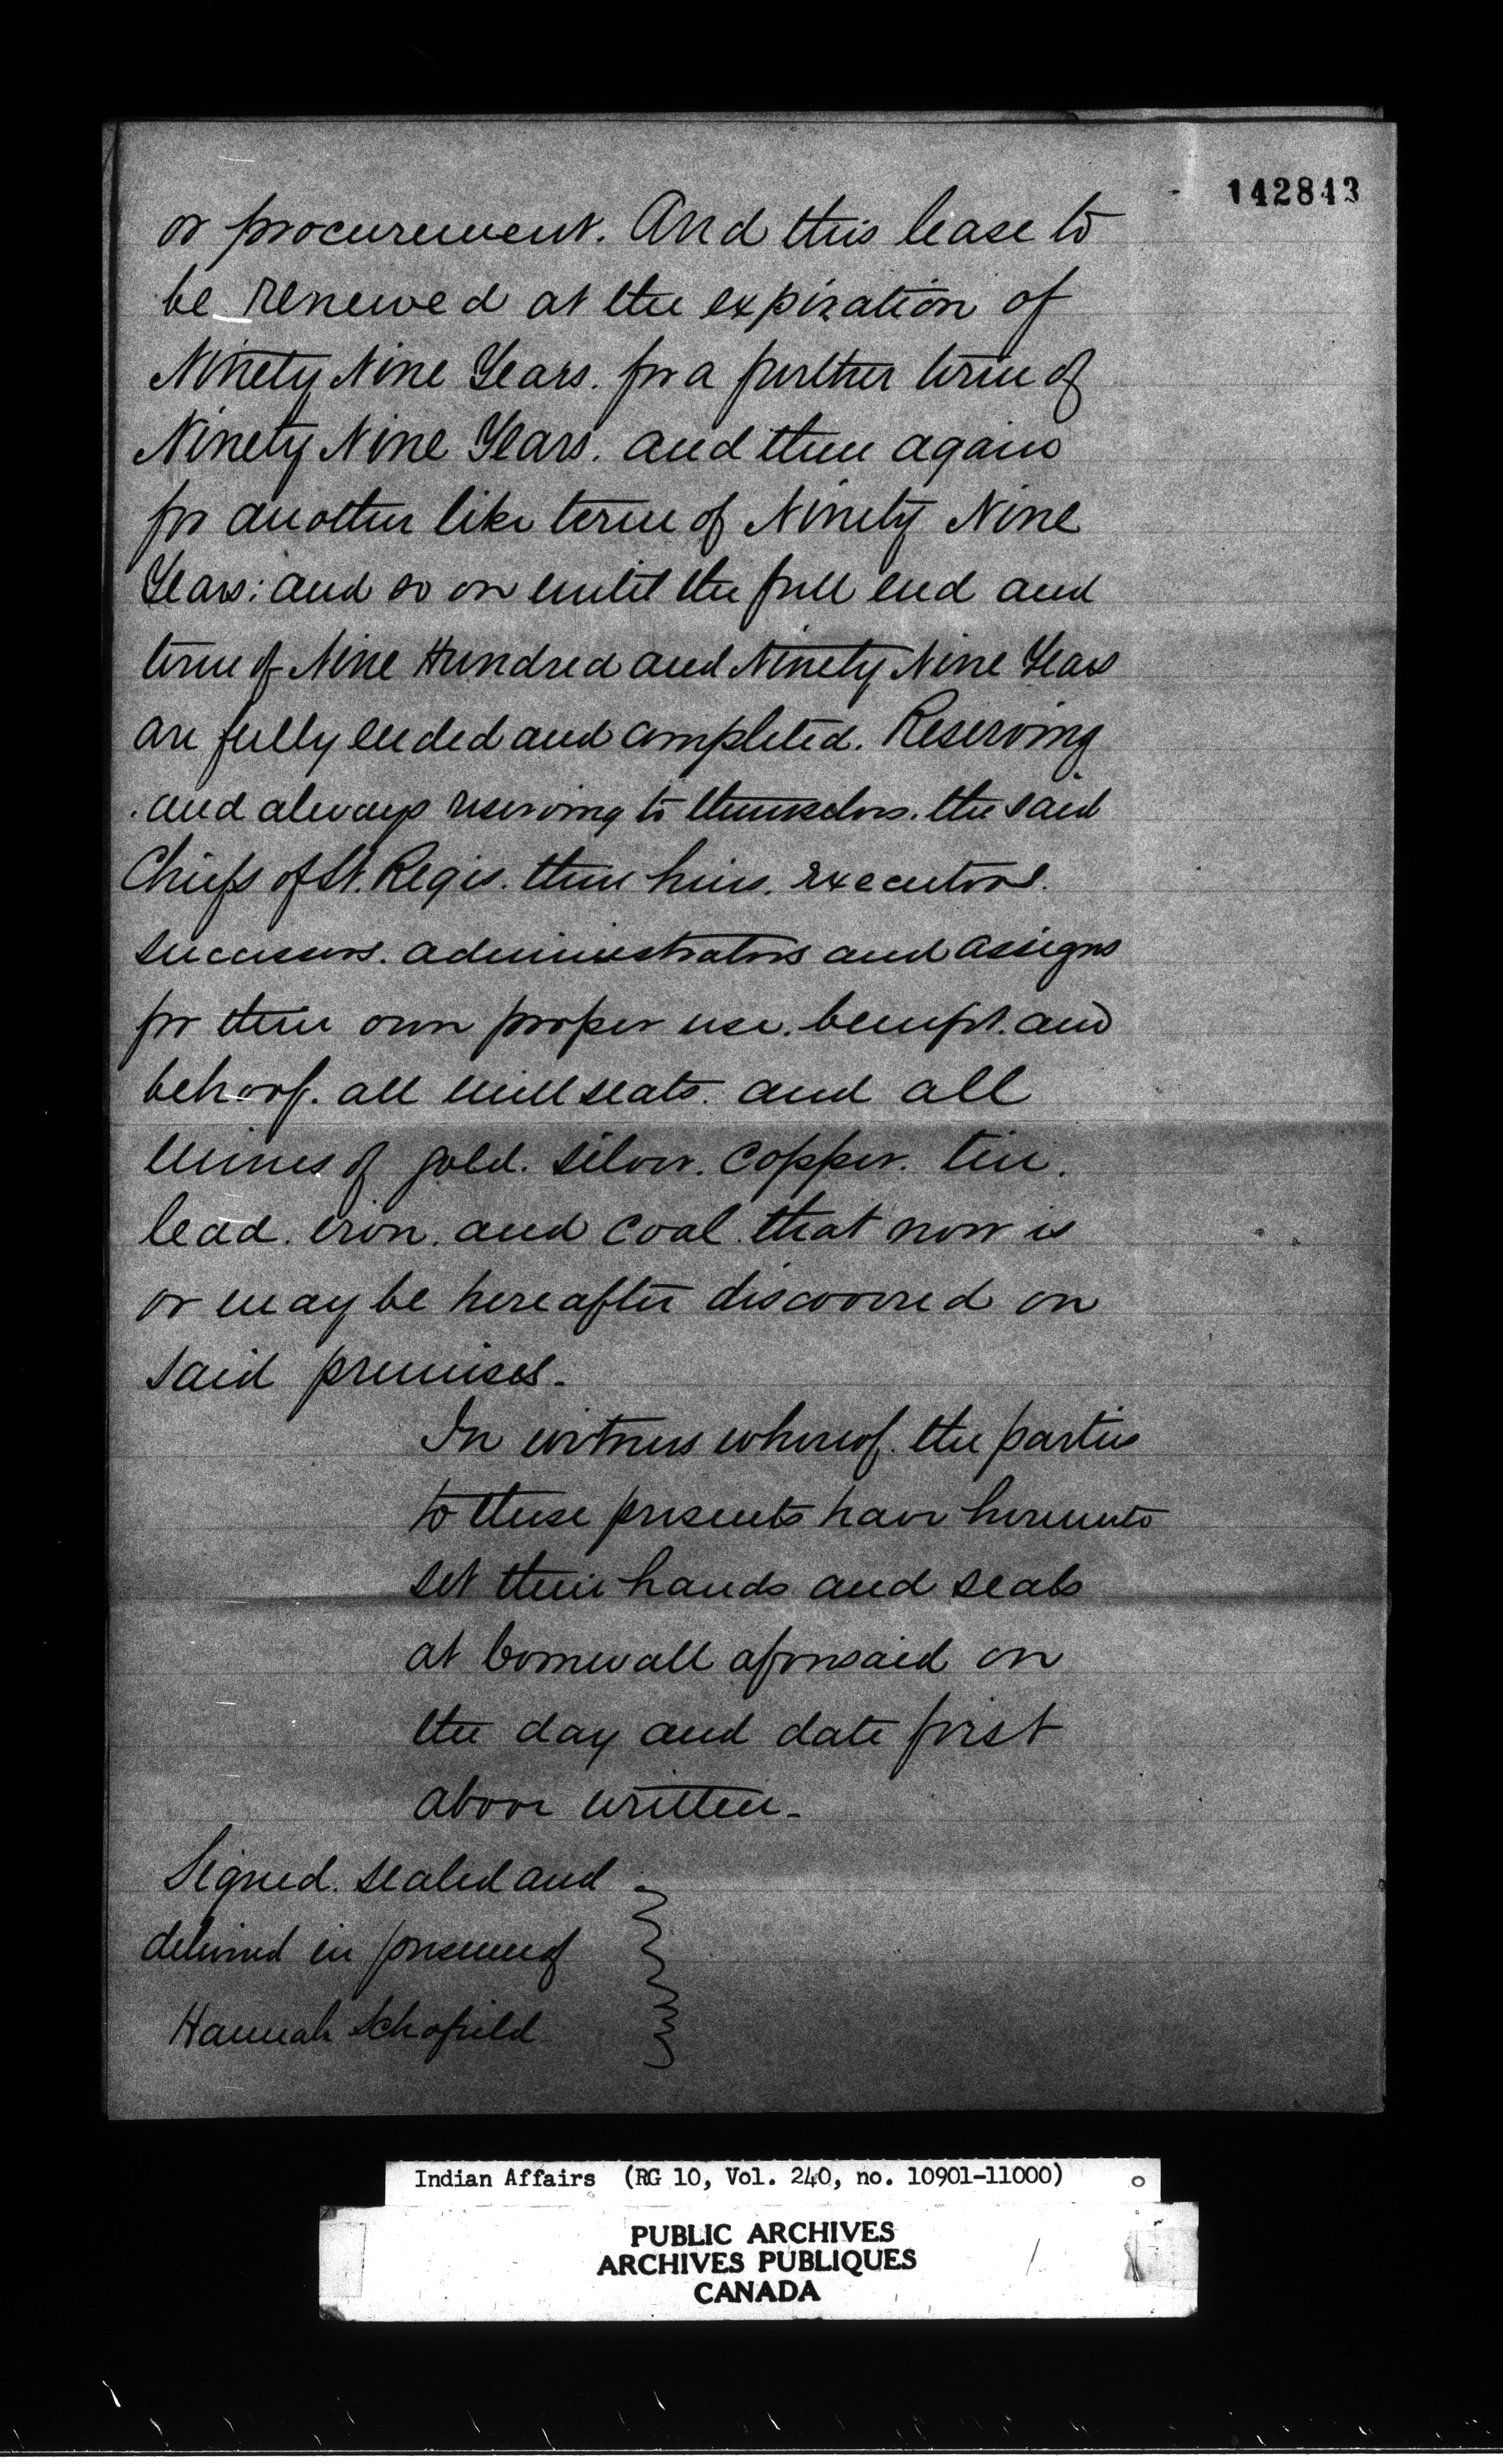 142843
or procurement. And this lease to
be renewed at the expiration of
Ninety Nine Years. for a further term of
Ninety Nine Years. and then again
for another like term of Ninety Nine
Years: and so on until the full end and
term of Nine Hundred and Ninety Nine Years
are fully ended and completed. Reserving
and always reserving to themselves. the said
Chiefs of St. Regis. their heirs. executors.
successors. administrators and assigns
for their own proper use. benefit. and
behoof. all mill seats. and all
mines of gold. silver. copper. tin.
lead. iron. and coal that now is
or may be hereafter discovered on
said premises.
In witness whereof. the parties
to these presents have hereunto
set their hands and seals
at Cornwall aforesaid on
the day and date first
above written.
Signed. sealed and
delivered in presence of
Hannah Schofield
Indian Affairs (RG 10, Vol. 240, no. 10901-11000)
PUBLIC ARCHIVES
ARCHIVES PUBLIQUES
CANADA